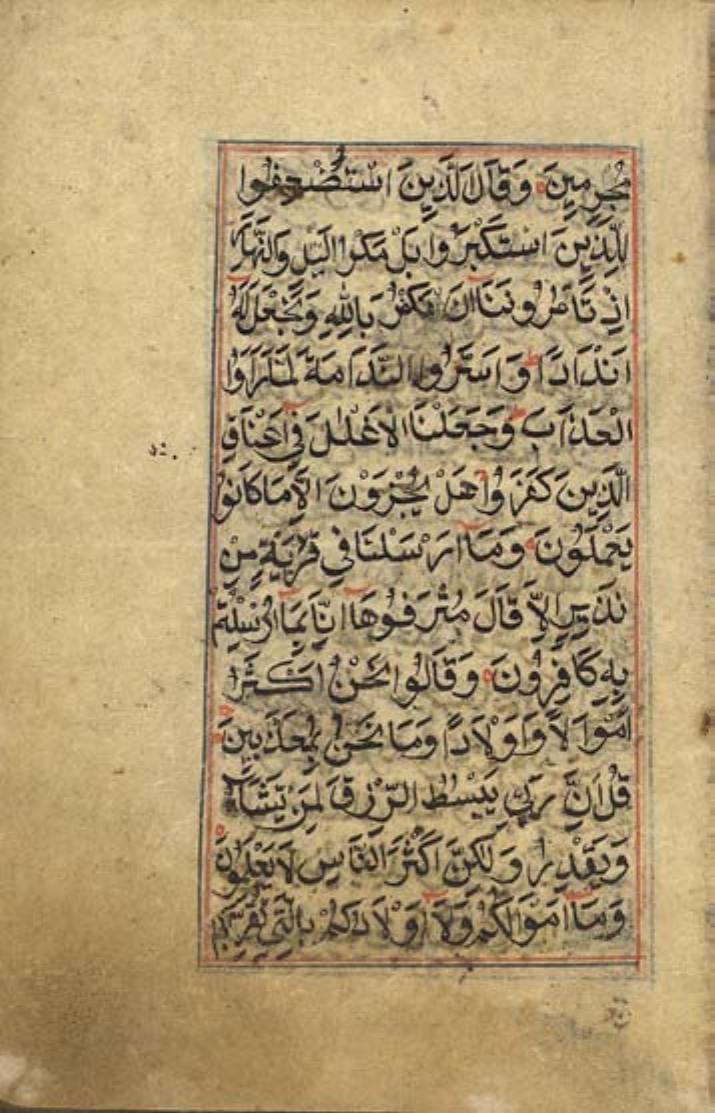 مُجْرِمِينَ وَقَالَ الَّذِينَ اسْتُضْعِفُوا
لِلَّذِينَ اسْتَكْبَرُوا بَلْ مَكْرُ الَّيْلِ وَالنَّهَارِ
اِذْ تَأْمُرُونَنَا اَنْ نَكْفُرَ بِاللّٰهِ وَنَجْعَلَ لَهُ
اَنْدَادًا وَاَسَرُّوا النَّدَامَةَ لَمَّا رَاَوُا
الْعَذَابَ وَجَعَلْنَا الْاَغْلٰلَ فِي اَعْنَاقِ
الَّذِينَ كَفَرُوا هَلْ يُجْزَوْنَ اِلَّا مَا كَانُوا
يَعْمَلُونَ وَمَا اَرْسَلْنَا فِي قَرْيَةٍ مِنْ
نَذِيرٍ اِلَّا قَالَ مُتْرَفُوهَا اِنَّا بِمَا اُرْسِلْتُمْ
بِهِ كَافِرُونَ وَقَالُوا نَحْنُ اَكْثَرُ
اَمْوَالًا وَاَوْلَادًا وَمَا نَحْنُ بِمُعَذَّبِينَ
قُلْ اِنَّ رَبِّي يَبْسُطُ الرِّزْقَ لِمَنْ يَشَاءُ
وَيَقْدِرُ وَلٰكِنَّ اَكْثَرَ النَّاسِ لَا يَعْلَمُونَ
وَمَا اَمْوَالُكُمْ وَلَا اَوْلَادُكُمْ بِالَّتِي تُقَرِّبُكُمْ